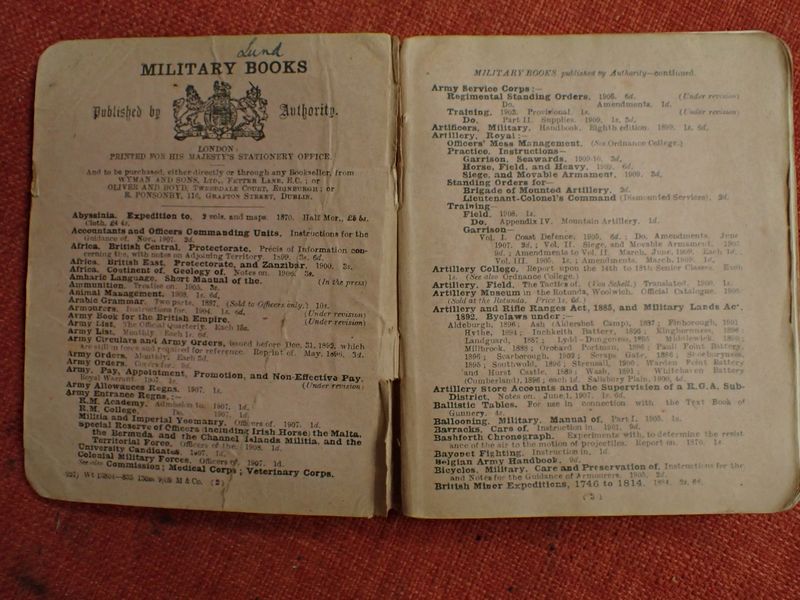 Lund
MILITARY BOOKS
Published by Authority.
LONDON:
PRINTED FOR HIS MAJESTY'S STATIONERY OFFICE.
And to be purchased, either directly or through any Bookseller, from
WYMAN AND SONS, LTD., FETTER LANE, E.C.; or
OLIVER AND BOYD, TWEEDDALE COURT, EDINBURGH; or
E. PONSONBY, 116, GRAFTON STREET, DUBLIN.
Abyssinia. Expedition to. 2 vols. and maps. 1870. Half Mor., £5 5s.
Cloth, £4 4s.
Accountants and Officers Commanding Units, Instructions for the
Guidance of. Nov., 1907. 2d.
Africa. British Central, Protectorate. Précis of Information con-
cerning the, with notes on Adjoining Territory. 1899. 3s. 6d.
Africa. British East, Protectorate, and Zanzibar. 1900. 2s.
Africa. Continent of. Geology of. Notes on. 1906. 3s.
Amharic Language. Short Manual of the. (In the press)
Ammunition. Treatise on. 1905. 2s.
Animal Management. 1908. 1s. 6d.
Arabic Grammar. Two parts. 1887. (Sold to Officers only.) 10s.
Armourers. Instructions for. 1904. 1s. 6d. (Under revision)
Army Book for the British Empire. (Under revision)
Army List. The Official Quarterly. Each 15s.
Army List. Monthly. Each 1s. 6d.
Army Circulars and Army Orders, issued before Dec. 31, 1892, which
are still in force and required for reference. Reprint of. May, 1896. 3d.
Army Orders. Monthly. Each 3d.
Army Orders. Covers for. 3d.
Army. Pay, Appointment, Promotion, and Non-Effective Pay.
Royal Warrant. 1907. 1s. (Under revision)
Army Allowances Regns. 1907. 1s.
Army Entrance Regns.:—
R.M. Academy. Admission to. 1907. 1d.
R.M. College. Do. 1907. 1d.
Militia and Imperial Yeomanry. Officers of. 1907. 1d.
Special Reserve of Officers including Irish Horse; the Malta,
the Bermuda, and the Channel Islands Militia, and the
Territorial Force. Officers of the. 1908. 1d.
University Candidates. 1907. 1d.
Colonial Military Forces. Officers of. 1907. 1d.
See also Commission; Medical Corps; Veterinary Corps.
M & Co. (2)
MILITARY BOOKS published by Authority—continued.
Army Service Corps:—
Regimental Standing Orders. 1906. 6d. (Under revision)
Do. Amendments. 1d.
Training. 1903. Provisional. 1s. (Under revision)
Do. Part II. Supplies. 1909. 1s. 3d.
Artificers, Military. Handbook. Eighth edition. 1899. 1s. 6d.
Artillery, Royal:—
Officers' Mess Management. (See Ordnance College.)
Practice. Instructions—
Garrison. Seawards. 1909-10. 3d.
Horse, Field, and Heavy. 1909. 6d.
Siege, and Movable Armament. 1909. 3d.
Standing Orders for—
Brigade of Mounted Artillery. 3d.
Lieutenant-Colonel's Command (Dismounted Services). 3d.
Training—
Field. 1908. 1s.
Do. Appendix IV. Mountain Artillery. 1d.
Garrison—
Vol. I. Coast Defence. 1905. 6d.; Do. Amendments. June
1907. 2d.; Vol. II. Siege, and Movable Armament. 1905.
9d.; Amendments to Vol. II. March, June, 1909. Each 1d.;
Vol. III. 1905. 1s.; Amendments. March, 1909. 1d.
Artillery College. Report upon the 14th to 18th Senior Classes. Each
1s. (See also Ordnance College.)
Artillery. Field. The Tactics of. (Von Schell.) Translated. 1900. 1s.
Artillery Museum in the Rotunda, Woolwich. Official Catalogue. 1906.
(Sold at the Rotunda. Price 1s. 6d.)
Artillery and Rifle Ranges Act, 1885, and Military Lands Act,
1892. Byelaws under:—
Aldeburgh, 1896; Ash (Aldershot Camp), 1887; Finborough, 1901
Hythe, 1894; Inchkeith Battery, 1896; Kingharness, 1896
Landguard, 1887; Lydd-Dungeness, 1895 Middlewick, 1890;
Millbrook, 1888; Orchard Portman, 1896; Pauli Point Battery,
1896; Scarborough, 1902; Scraps Gate, 1886; Shoeburyness,
1895; Southwold, 1896; Strensall, 1900; Warden Point Battery
and Hurst Castle, 1889; Wash, 1891; Whitehaven Battery
(Cumberland), 1896; each 1d. Salisbury Plain, 1900, 4d.
Artillery Store Accounts and the Supervision of a R.G.A. Sub-
District. Notes on. June 1, 1907. 1s. 6d.
Ballistic Tables. For use in connection with the Text Book of
Gunnery. 4s.
Ballooning. Military. Manual of. Part I. 1905. 1s.
Barracks. Care of. Instruction in. 1901. 9d.
Bashforth Chronograph. Experiments with, to determine the resist
ance of the air to the motion of projectiles. Report on. 1870. 1s.
Bayonet Fighting. Instruction in. 1d.
Belgian Army Handbook. 9d.
Bicycles, Military. Care and Preservation of. Instructions for the
and Notes for the Guidance of Armourers. 1905. 2d.
British Minor Expeditions, 1746 to 1814. 1884. 2s. 6d.
(3)